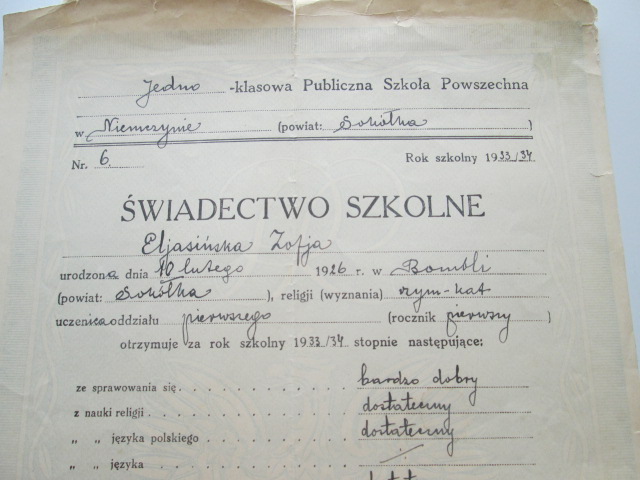 Jedno -klasowa Publiczna Szkoła Powszechna
w Niemczynie (powiat: Sokółka )
Nr. 6. Rok szkolny 1933/34
ŚWIADECTWO SZKOLNE
Eljasińska Zofja
urodzona dnia 10 lutego 1926 r. w Bombli
(powiat: Sokółka ), religii (wyznania) rzym-kat
uczenica oddziału pierwszego (rocznik pierwszy )
otrzymuje za rok szkolny 1933/34 stopnie następujące:
ze sprawowania się bardzo dobry
z nauki religii dostateczny
„ „ języka polskiego dostateczny
„ „ języka